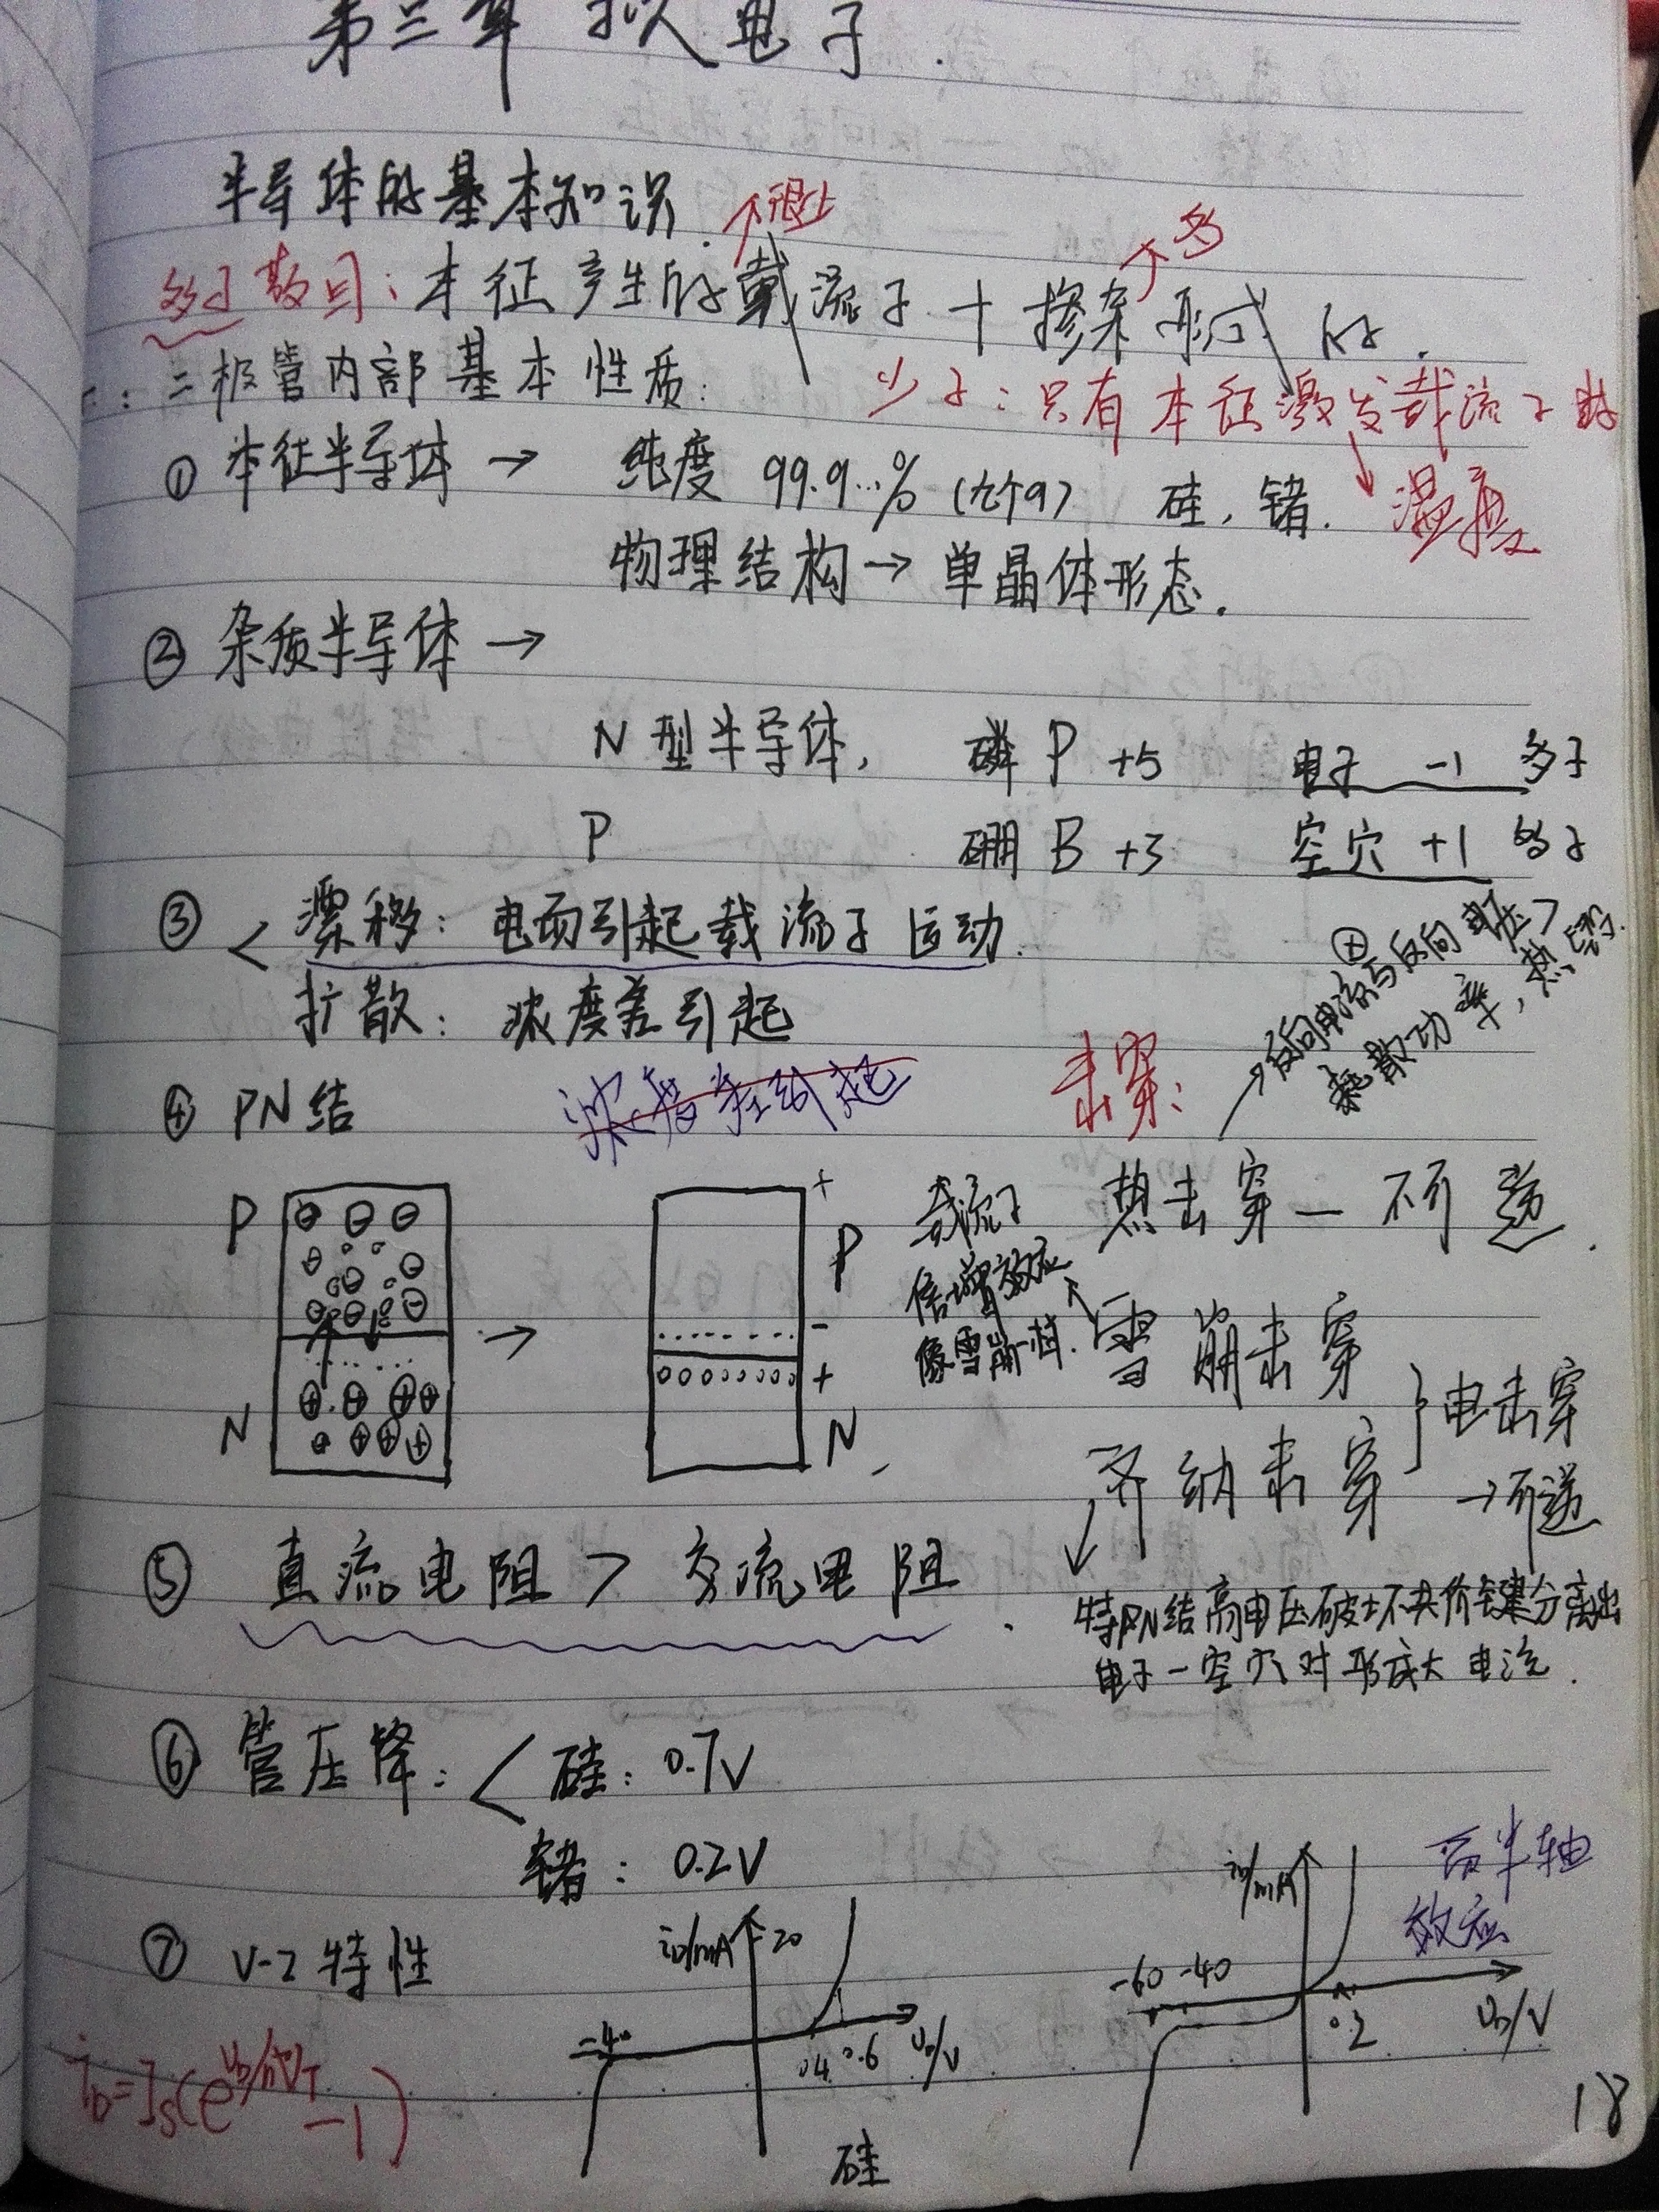 第三章 拟电子
半导体的基本知识.
很少
多
多子数目: 本征产生的载流子 + 掺杂形成的.
二极管内部基本性质:
少子: 只有本征激发载流子
① 本征半导体 → 纯度 99.9…% (九个9) 硅, 锗. 温度
物理结构 → 单晶体形态.
② 杂质半导体 →
N型半导体, 磷 P +5 电子 -1 多子
P 硼 B +3 空穴 +1 多子
③ < 漂移: 电场引起载流子运动.
扩散: 浓度差引起
反向电流与反向电压>
耗散功率, 热
击穿:
④ PN结
P
N
+
P
-
+
N
热击穿 — 不可逆.
载流子
倍增效应
像雪崩一样.
雪崩击穿
齐纳击穿
} 电击穿
→ 可逆
特PN结高电压破坏共价键分离出
电子-空穴对形成大电流.
⑤ 直流电阻 > 交流电阻.
⑥ 管压降: < 硅: 0.7V
锗: 0.2V
⑦ V-I特性
iD/mA 20
-40
0.4 0.6 UD/V
硅
iD/mA
-60 -40
0.2 UD/V
半轴
效应
iD=IS(e^{UD/nVT}-1)
18